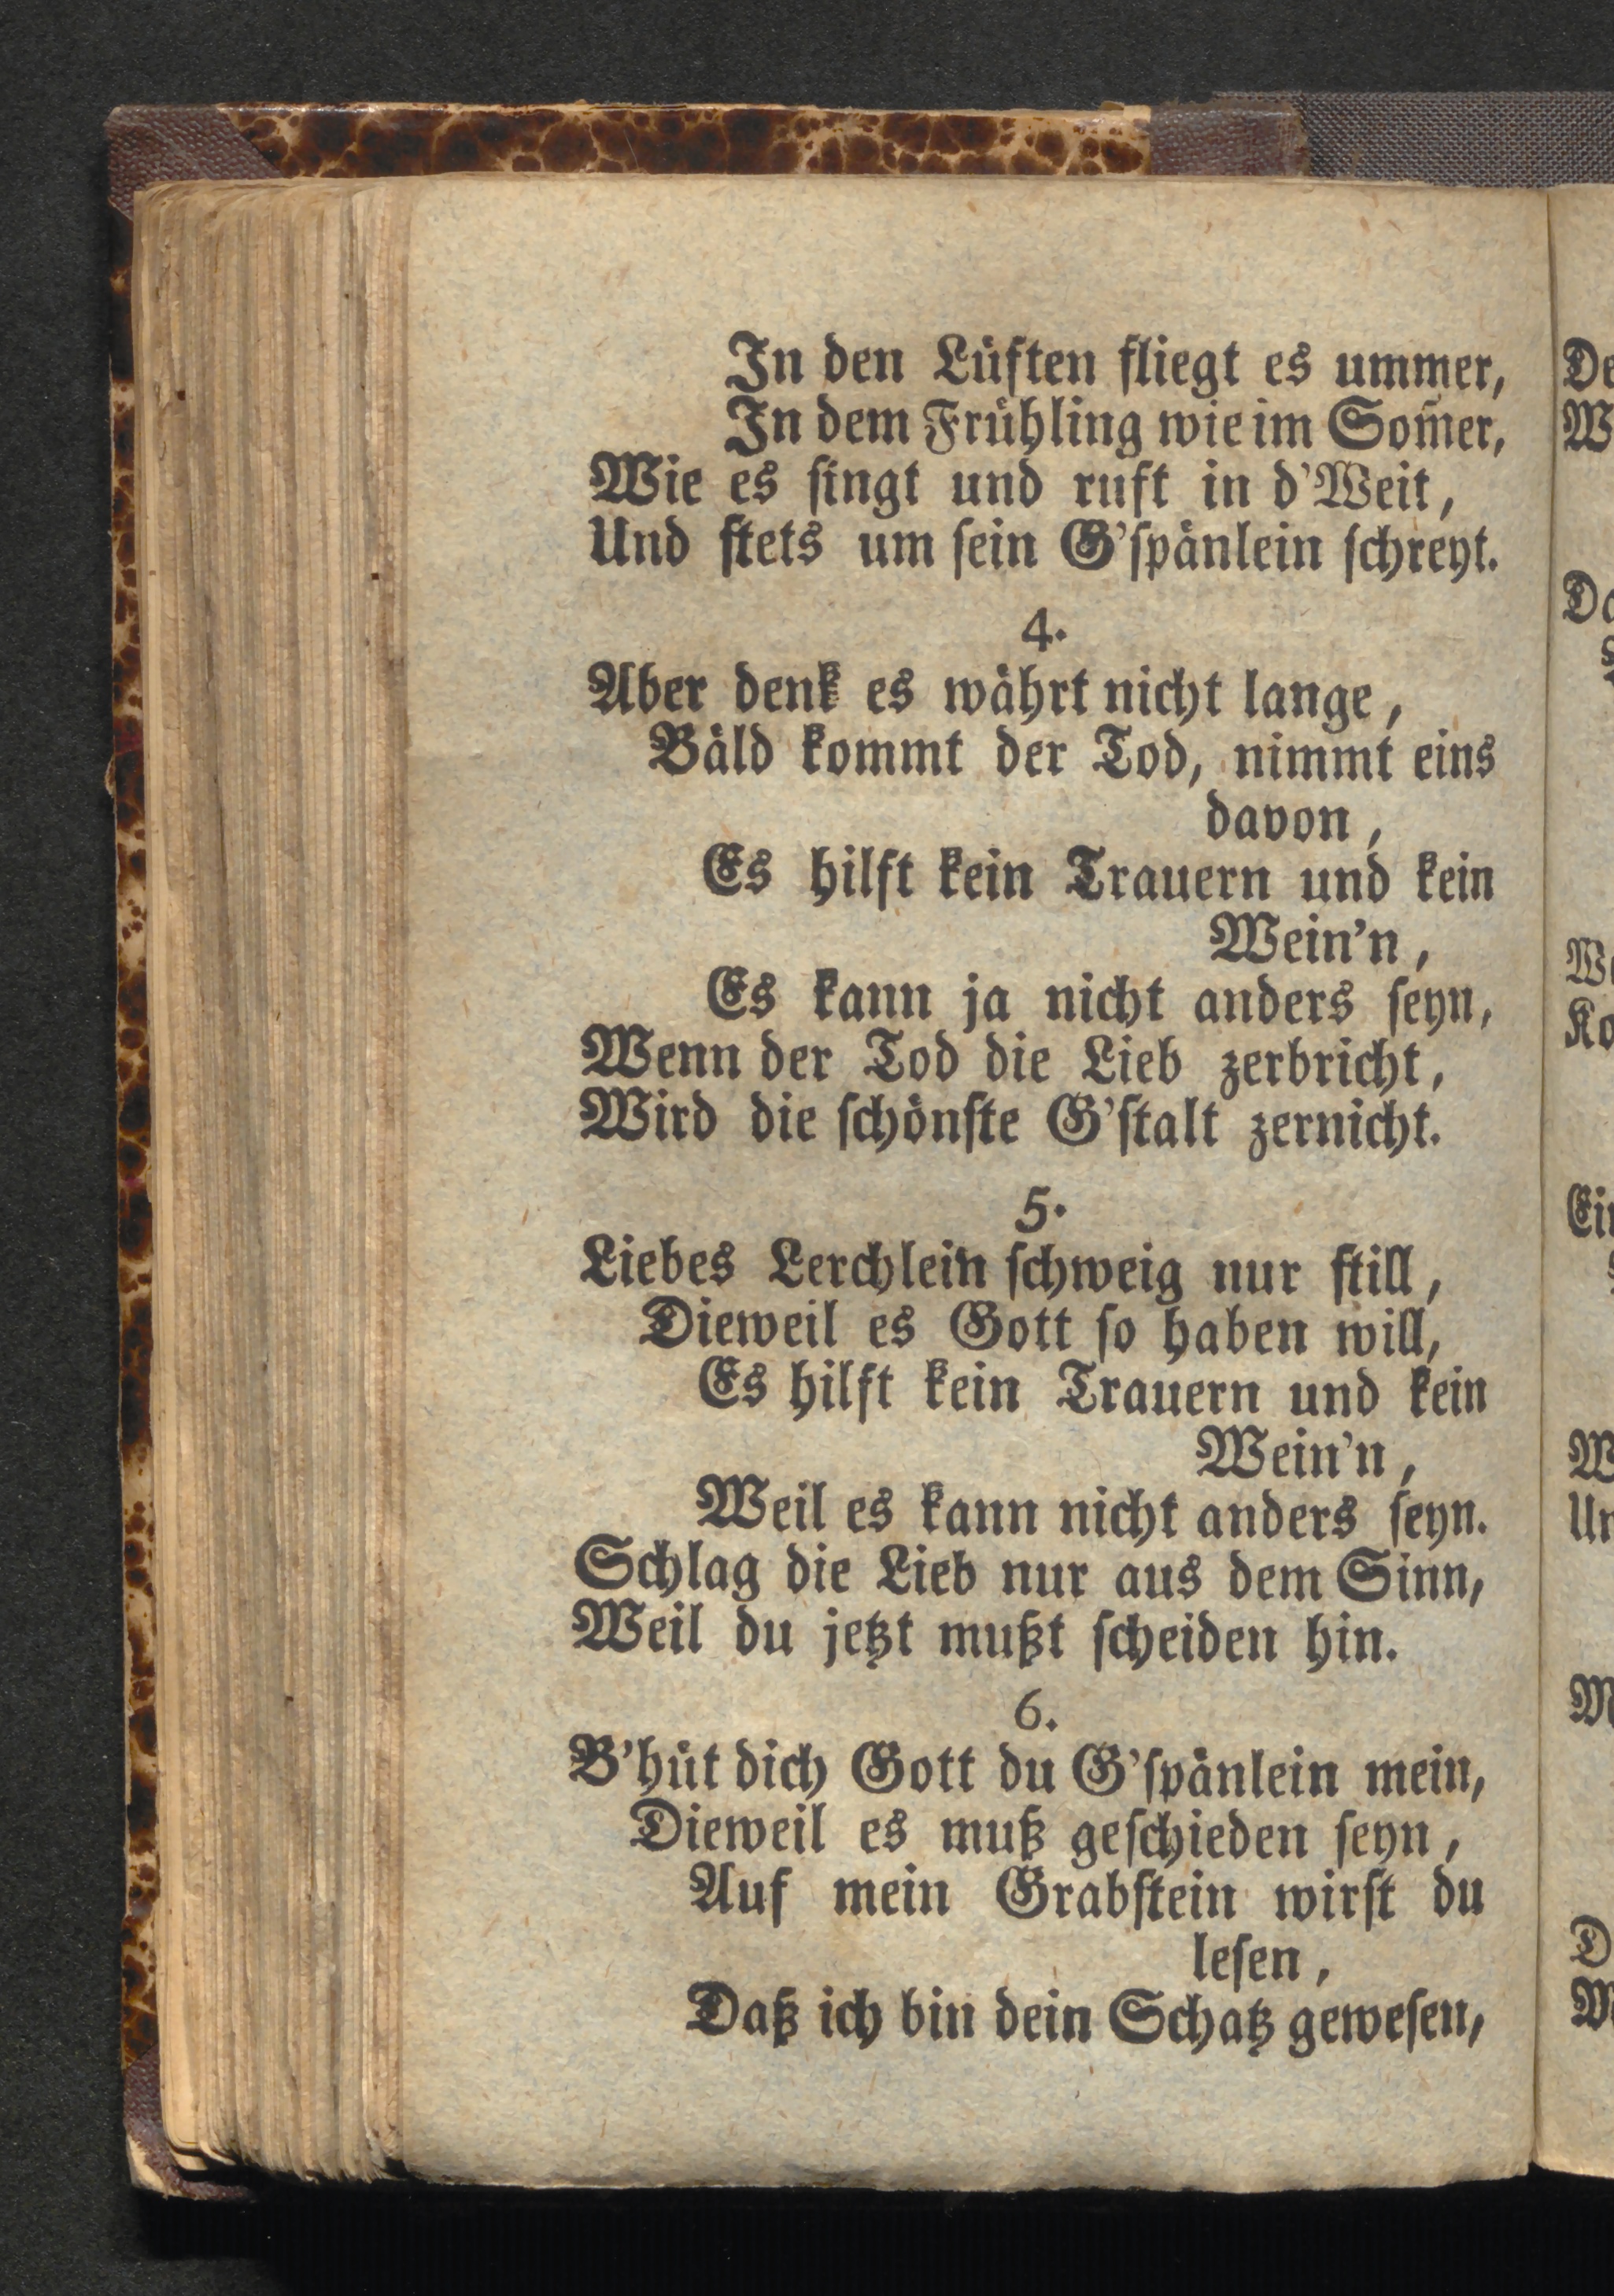 In den Lüften fliegt es ummer,
In dem Frühling wie im Som̃er,
Wie es ſingt und ruft in d'Weit,
Und ſtets um ſein G'ſpänlein ſchreyt.
4.
Aber denk es währt nicht lange,
Bäld kommt der Tod, nimmt eins
davon,
Es hilft kein Trauern und kein
Wein'n,
Es kann ja nicht anders ſeyn,
Wenn der Tod die Lieb zerbricht,
Wird die ſchönſte G'ſtalt zernicht.
5.
Liebes Lerchlein ſchweig nur ſtill,
Dieweil es Gott ſo haben will,
Es hilft kein Trauern und kein
Wein'n,
Weil es kann nicht anders ſeyn.
Schlag die Lieb nur aus dem Sinn,
Weil du jetzt mußt ſcheiden hin.
6.
B'hüt dich Gott du G'ſpänlein mein,
Dieweil es muß geſchieden ſeyn,
Auf mein Grabſtein wirſt du
leſen,
Daß ich bin dein Schatz geweſen,